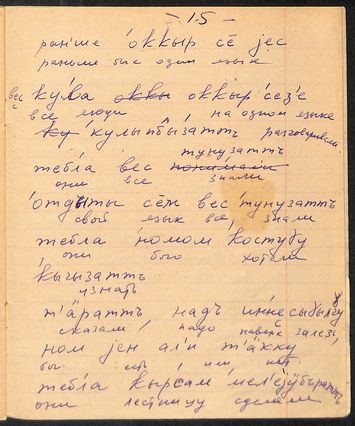 - 15 -
ра́н'ше о́ккыр се̄ jес
раньше был один язык
вес ку́ла оккыр се́з'е
все люди на одном языке
кулыпбы́затть разговаривали
тунузатть
тебла вес понимали
они все знали
о́тдыты се̄м вес тунузатть
свой язык все знали
тебла но́мом ко́стугу
они бога хотели
кыгызатть
узнать
т'а́ратть надъ и́нне сыбылгу
сказали надо наверх залезть
ном jен али т'а́ңку
бог есть или нет
тебла кырсам мел'еjӱбъратть
они лестницу сделали